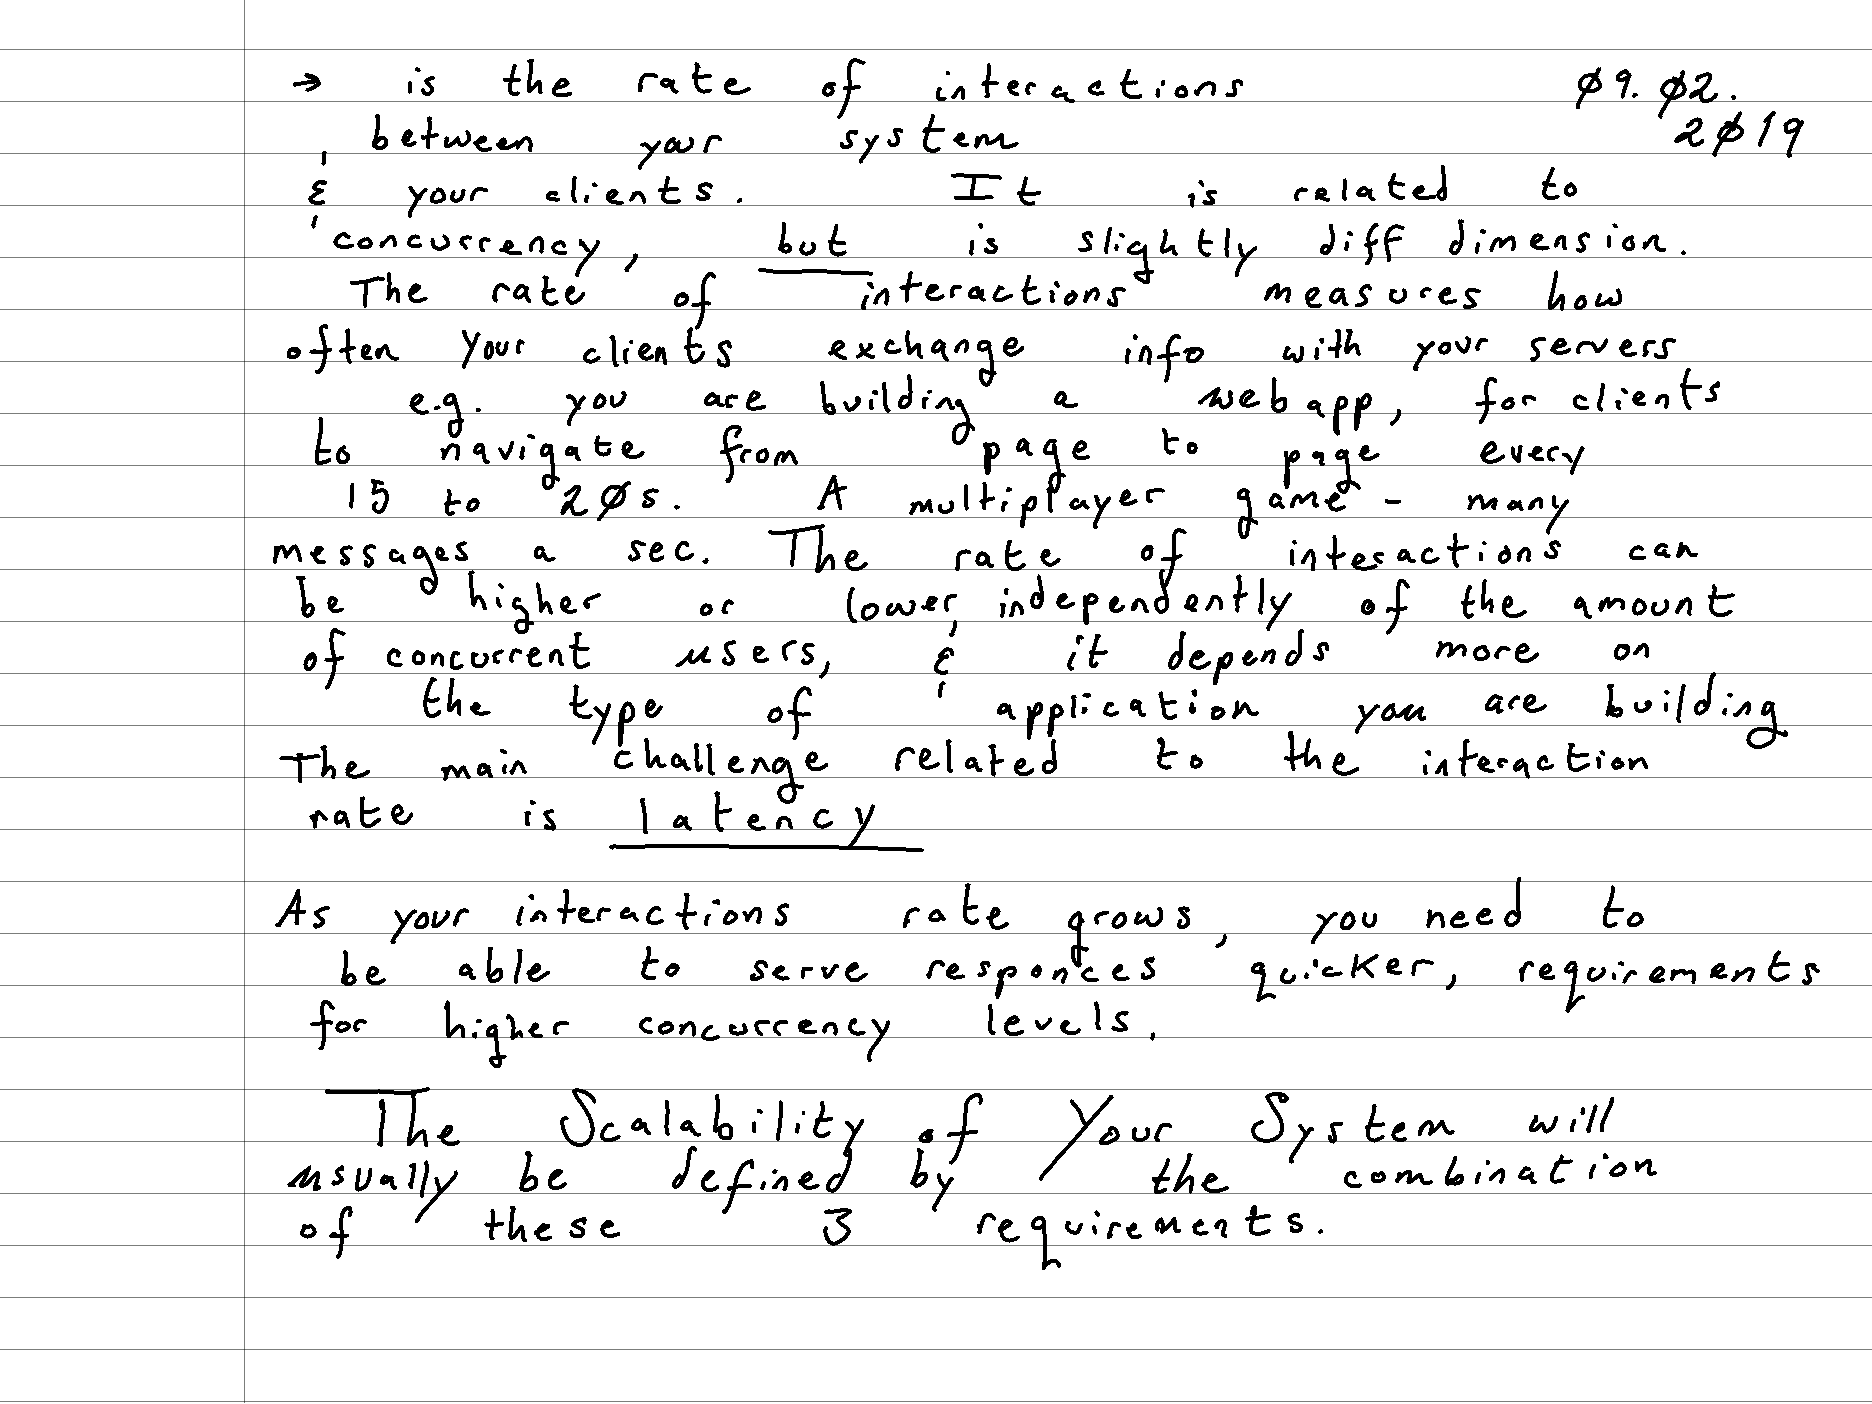 → is the rate of interactions ø9. ø2.
between your system 2ø19
& your clients. It is related to
concurrency, but is slightly diff dimension.
The rate of interactions measures how
often your clients exchange info with your servers
e.g. you are building a web app, for clients
to navigate from page to page every
15 to 2øs. A multiplayer game - many
messages a sec. The rate of interactions can
be higher or lower, independently of the amount
of concurrent users, & it depends more on
the type of application you are building
The main challenge related to the interaction
rate is latency
As your interactions rate grows, you need to
be able to serve responces quicker, requirements
for higher concurrency levels.
The Scalability of Your System will
usually be defined by the combination
of these 3 requirements.